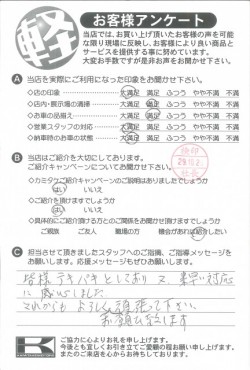 軽
お客様アンケート
当店では、お買い上げ頂いたお客様の声を可能
な限り現場に反映し、お客様により良い商品と
サービスを提供する事に努めています。
大変お手数ですが是非お声をお聞かせ下さい。
A 当店を実際にご利用になった印象をお聞かせ下さい。
◇店の印象 大満足 満足 ふつう やや不満 不満
◇店内・展示場の清掃 大満足 満足 ふつう やや不満 不満
◇お車の品揃え 大満足 満足 ふつう やや不満 不満
◇営業スタッフの対応 大満足 満足 ふつう やや不満 不満
◇納車時のお車の状態 大満足 満足 ふつう やや不満 不満
B 当店はご紹介を大切にしております。
ご紹介キャンペーンについてお聞かせ下さい。
◇カミタケご紹介キャンペーンのご説明はありましたでしょうか
はい いいえ
◇ご紹介を頂けますでしょうか
はい いいえ
◇具体的にご紹介頂ける方との関係をお聞かせ頂けますでしょうか
ご親族 ご友人 職場の方 機会があれば紹介したい
C 担当させて頂きましたスタッフへのご指摘、ご指導メッセージを
お願いします。応援メッセージもぜひお聞かせ下さい。
皆様テキパキとしており 又、素早い対応
に感心しました
これからも よろしく頑張って下さい。
お願い致します
K
ご協力に心よりお礼を申し上げます。
今後とも宜しくお引き立てご愛顧の程お願い申し上げます。
またのご来店を心からお待ちしております。